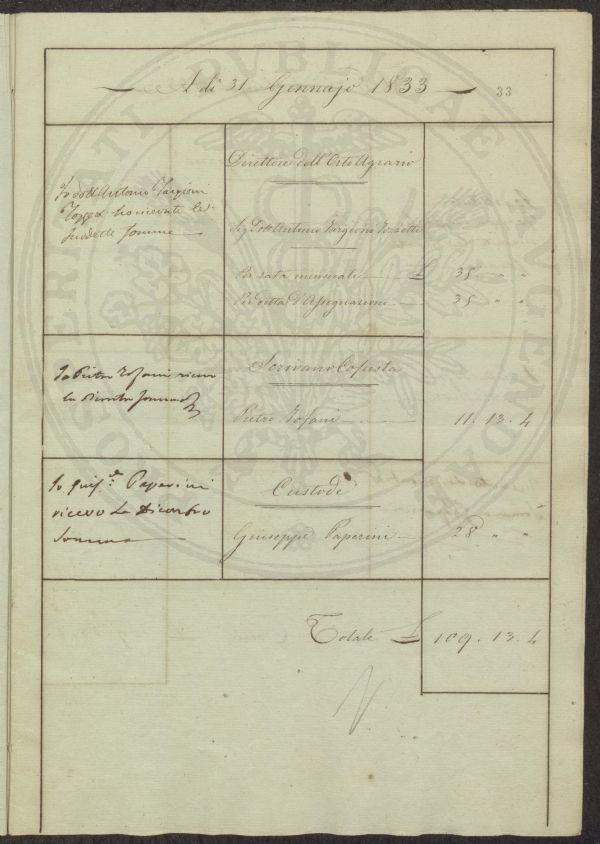 A di 31 Gennajo 1833
33
Direttore dell'Orto Agrario
Io dott Antonio Targioni
Tozzetti ho ricevute le
suddette somme
Sig. Dott Antonio Targioni Tozzetti
Per rata mensuale £ 35 " "
Per ditta d'Assegnazione 35 " "
Scrivano Copista
Io Pietro Tofani ricevo
la somma
Pietro Tofani 11. 13. 4
Custode
Io Giuse. Paperini
ricevo La Dicontro
Somma
Giuseppe Paperini 28 " "
Totale £ 109. 13. 4
PVBLICAE